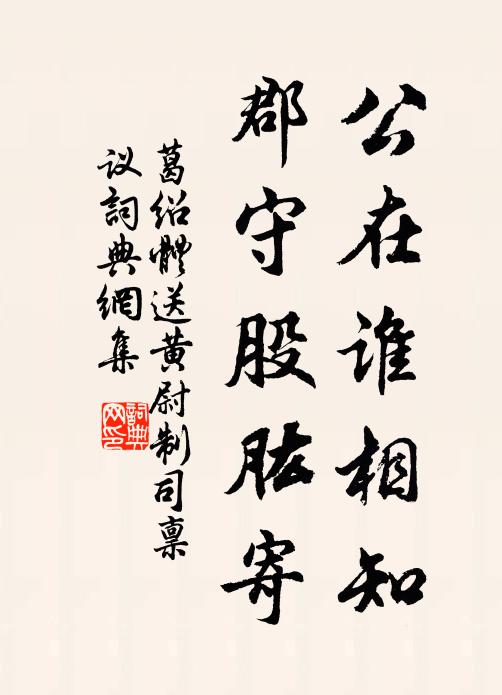 公在谁相知
郡守股肱寄
葛绍體送黄尉制司禀
议詞典網集
詞典
网印